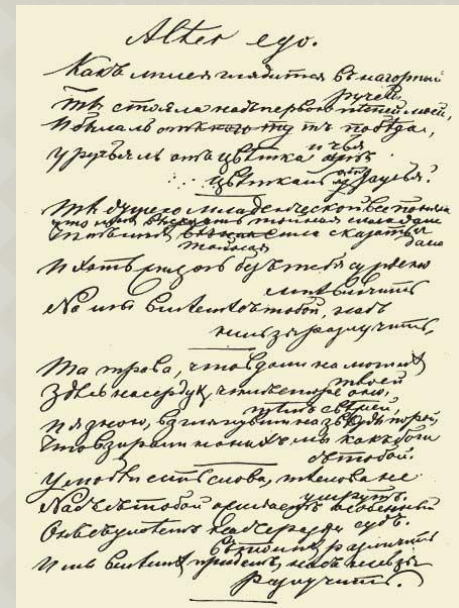 Alter ego.
Какъ лилея глядится въ нагорный
ручей,
Ты стояла надъ первою пѣсней моей,
И была ль
побѣда,
и чья
У ручья ль отъ цвѣтка
цвѣтка ль отъ ручья?
Ты душою младенческой все поняла
что мнѣ высказать тайная сила дала
И хоть жизнь безъ тебя суждено
мнѣ влачить
Но мы вмѣстѣ съ тобой, насъ
нельзя разлучить.
Та трава, что вдали на могилѣ
твоей
Здѣсь на сердцѣ, чѣмъ старе оно,
тѣмъ свѣжей,
И я знаю, взглянувши на звѣзды порой,
Что взирали на нихъ мы какъ боги
съ тобой.
У любви есть слова, тѣ слова не
умрутъ.
Насъ съ тобой ожидаетъ особенный
судъ.
Онъ съумѣетъ насъ сразу
въ толпѣ различить
И мы вмѣстѣ придемъ, насъ нельзя
разлучить.